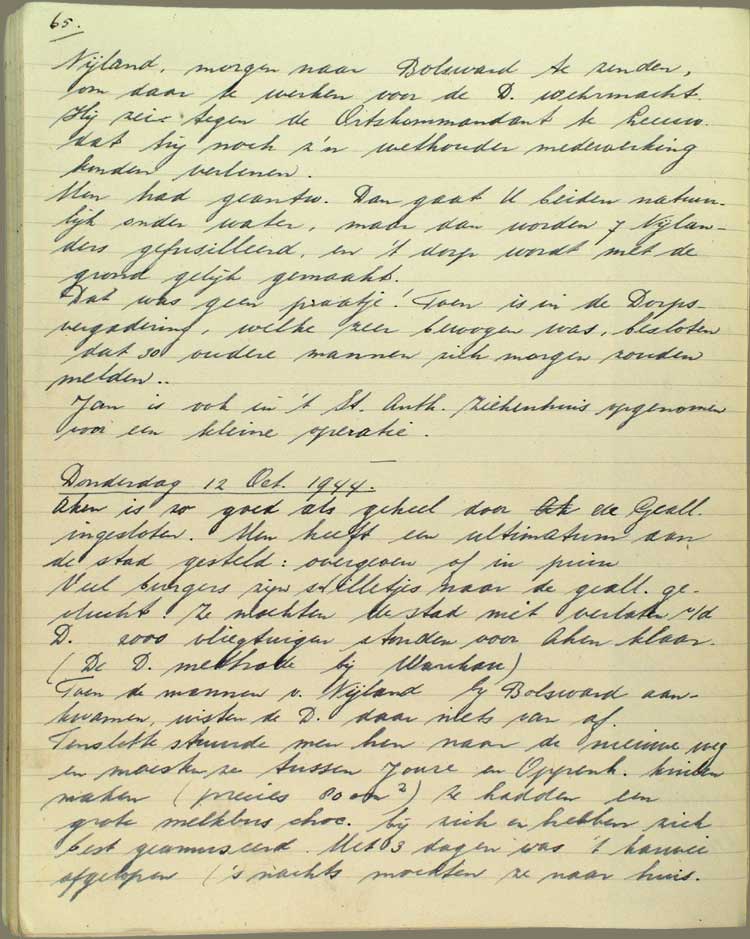 65.
Nijland, morgen naar Bolsward te zenden,
om daar te werken voor de D. wehrmacht.
Hij zei tegen de Ortskommandant te Leeuw.
dat hij noch z'n wethouder medewerking
konden verlenen.
Men had geantw. Dan gaat U beiden natuur-
lijk onder water, maar dan worden 7 Nijlan-
ders gefusilleerd, en 't dorp wordt met de
grond gelijk gemaakt.
Dat was geen praatje! Toen is in de Dorps-
vergadering, welke zeer bewogen was, besloten
dat 30 oudere mannen zich morgen zouden
melden..
Jan is ook in 't St. Anth. Ziekenhuis opgenomen
voor een kleine operatie.
Donderdag 12 Oct. 1944.
Aken is zo goed als geheel door de Geall.
ingesloten. Men heeft een ultimatum aan
de stad gesteld: overgeven of in puin
Veel burgers zijn stilletjes naar de geall. ge-
vlucht! Ze mochten de stad niet verlaten v/d
D. 2000 vliegtuigen stonden voor Aken klaar.
(De D. methode bij Warschau)
Toen de mannen v. Nijland bij Bolsward aan-
kwamen, wisten de D. daar niets van af.
Tenslotte stuurde men hen naar de nieuwe weg
en moesten ze tussen Joure en Oppenh. kuilen
maken (precies 80 cm²) Ze hadden een
grote melkbus choc. bij zich en hebben zich
best geamuseerd. Met 3 dagen was 't karwei
afgelopen ('s nachts mochten ze naar huis.